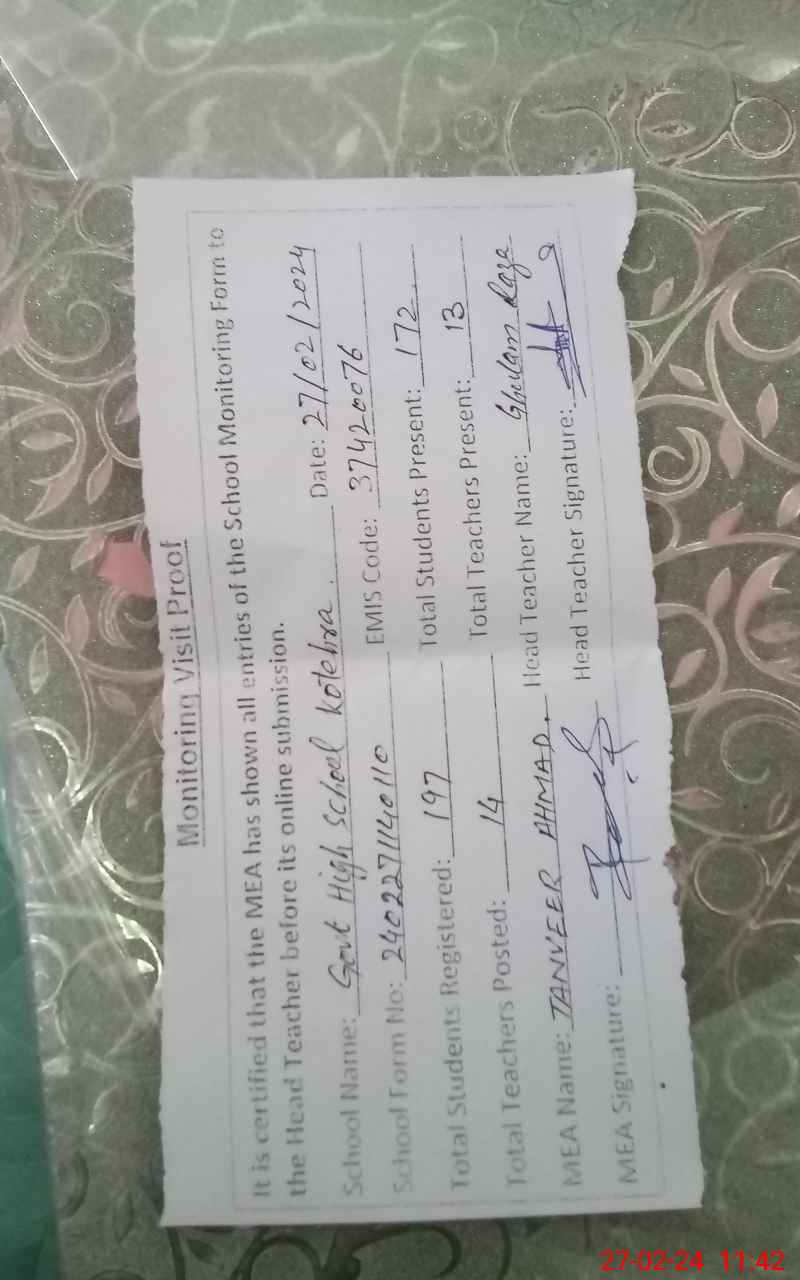 Monitoring Visit Proof
It is certified that the MEA has shown all entries of the School Monitoring Form to
the Head Teacher before its online submission.
School Name: Govt High School Kotehra. Date: 27/02/2024
School Form No: 2402271140110 EMIS Code: 37420076
Total Students Registered: 197 Total Students Present: 172
Total Teachers Posted: 14 Total Teachers Present: 13
MEA Name: TANVEER AHMAD. Head Teacher Name: Ghulam Raza
MEA Signature: Head Teacher Signature:
27-02-24 11:42